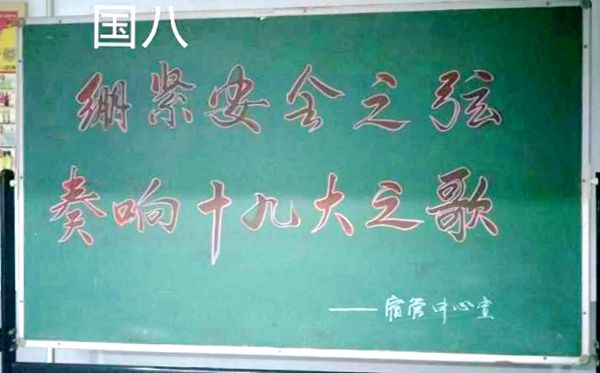 国八
绷紧安全之弦
奏响十九大之歌
——宿管中心宣